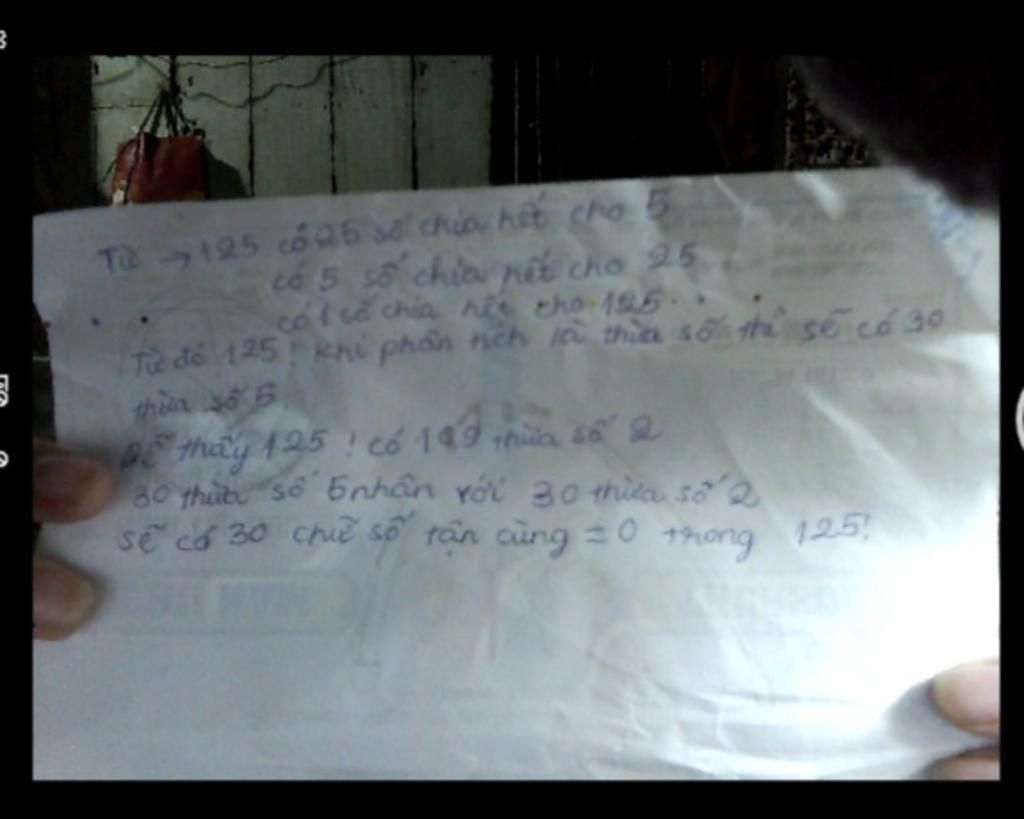 Từ → 125 có 25 số chia hết cho 5
có 5 số chia hết cho 25
có 1 số chia hết cho 125
Từ đó 125! khi phân tích là thừa số thì sẽ có 30
thừa số 5.
Dễ thấy 125! có 119 thừa số 2
30 thừa số 5 nhân với 30 thừa số 2
sẽ có 30 chữ số tận cùng = 0 trong 125!